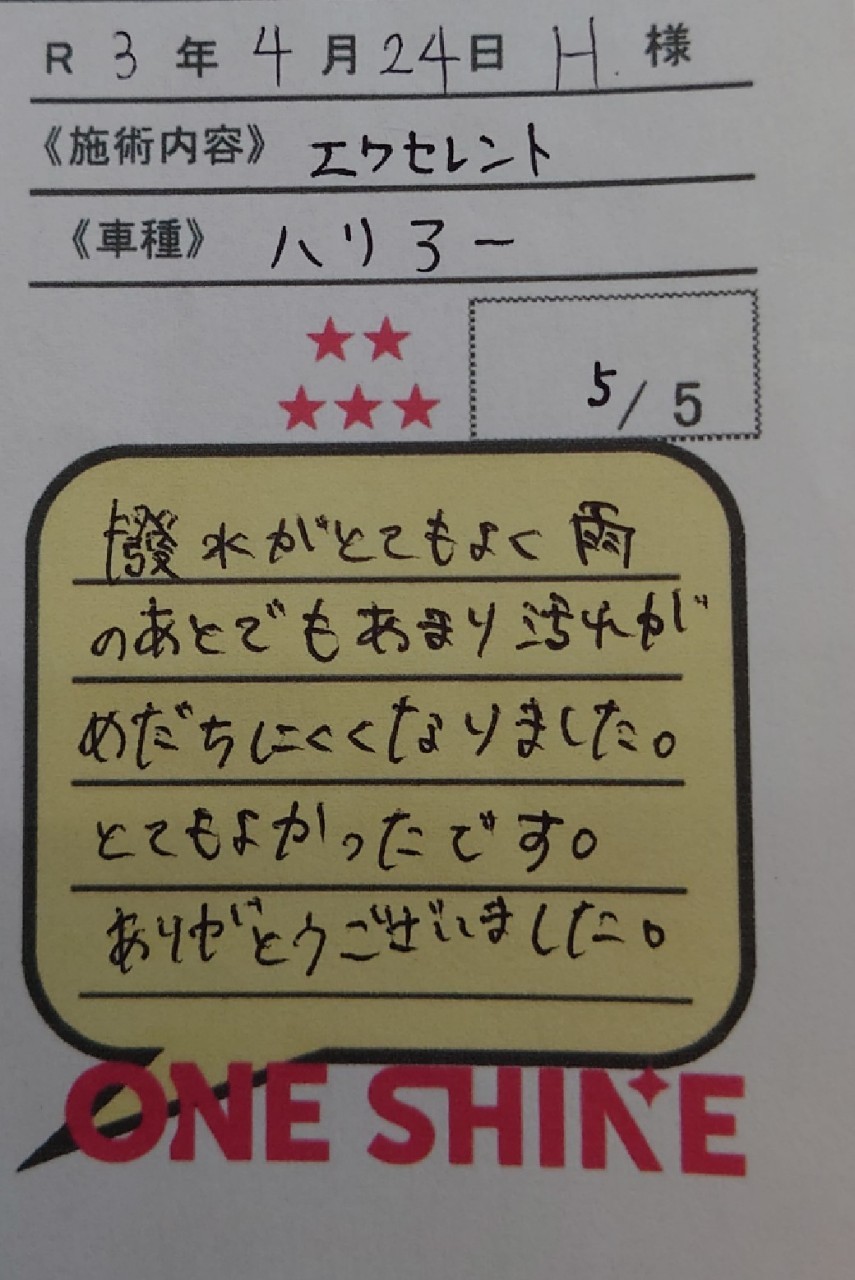 R 3 年 4 月 24 日 H. 様
《施術内容》 エクセレント
《車種》 ハリアー
★★
★★★
5/5
撥水がとてもよく雨
のあとでもあまり汚れが
めだちにくくなりました。
とてもよかったです。
ありがとうございました。
ONE SHINE